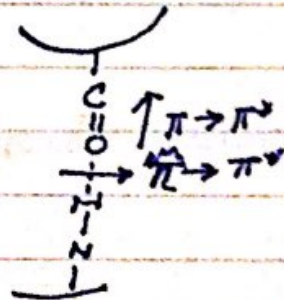 C
‖
O
π → π*
π → π*
H
N